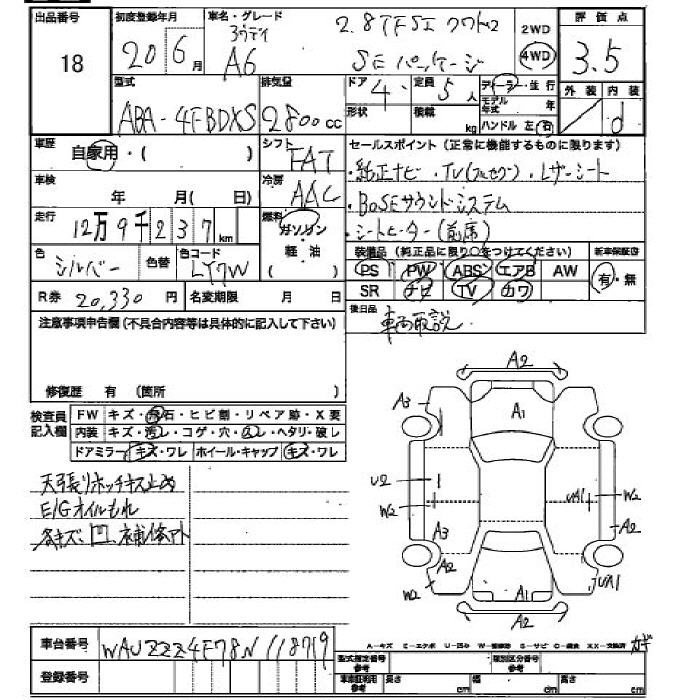 出品番号 初度登録年月 車名・グレード 2.8TFSI クワトロ 2WD 評価点
18 20年 6月 アウディ A6 SEパッケージ 4WD 3.5
型式 排気量 ドア 4 定員 5人 ディーラー・並行 外装 内装
ABA-4FBDXS 2800cc 形状 積載 kg モデル年式 年 d
ハンドル 左・右
車歴 自家用・( ) シフト FAT セールスポイント(正常に機能するものに限ります)
・純正ナビ・TV(フルセグ)・レザーシート
車検 年 月(日) 冷房 AAC
・BOSEサウンドシステム
走行 12万9千237km 燃料 ガソリン 軽・油
・シートヒーター(前席)
色 シルバー 色替 色コード LY7W 装備品(純正品に限り○をつけてください) 新車保証書
PS PW ABS エアB AW 有・無
R券 20,330円 名変期限 月 日 SR ナビ TV カワ
注意事項申告欄(不具合内容等は具体的に記入して下さい) 後日品
車両取説
修復歴 有 (箇所 )
検査員記入欄 FW キズ・飛石・ヒビ割・リペア跡・X要
内装 キズ・汚れ・コゲ・穴・スレ・ヘタリ・破レ
ドアミラー キズ・ワレ ホイール・キャップ キズ・ワレ
天張りホッチキス止め
E/Gオイルもれ
各キズ、凹、補修アト
A2
A3 A1 A2
U2 UA1 W2
W2
A3 A2
A2 UA1
W2 A1
A2
車台番号 WAUZZZ4F78N118719 A-キズ E-エクボ U-凹み W-補修跡 S-サビ C-腐食 XX-交換済
登録番号 型式指定番号 参考 類別区分番号 参考
車庫証明用 参考 長さ cm 幅 cm 高さ cm